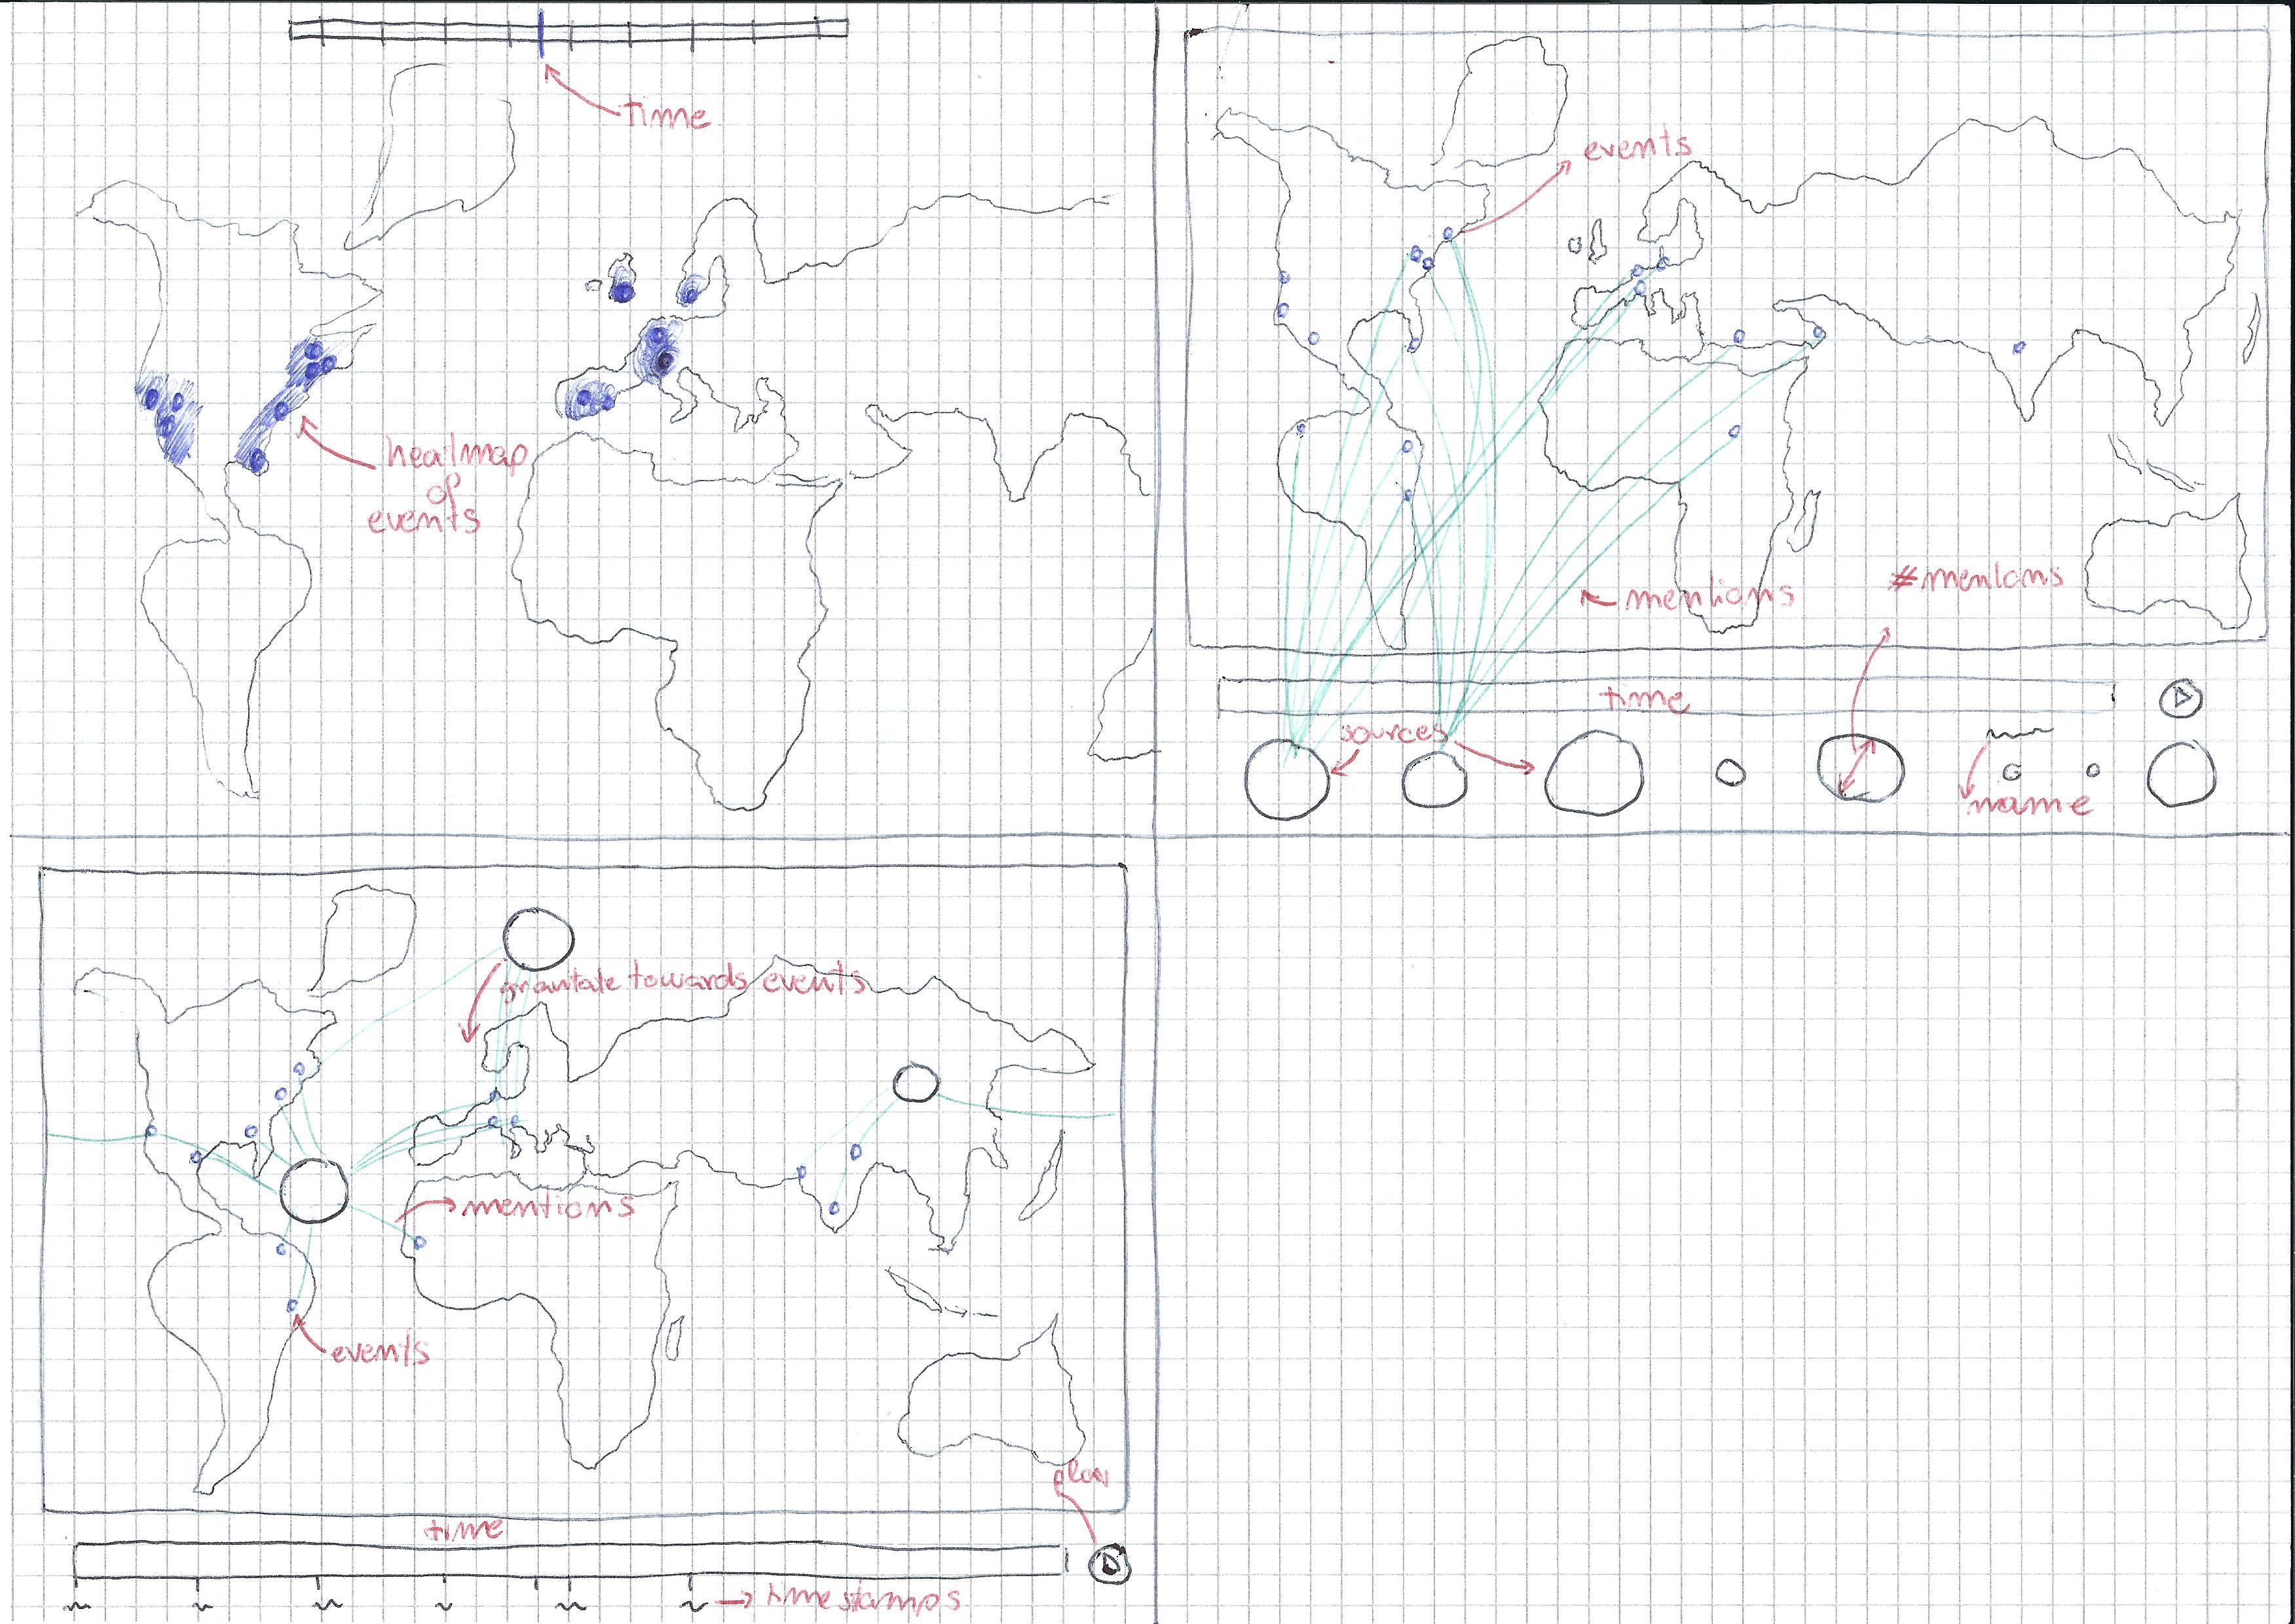 time
heatmap
of
events
events
mentions
#mentions
time
sources
name
towards events
mentions
events
play
time
timestamps